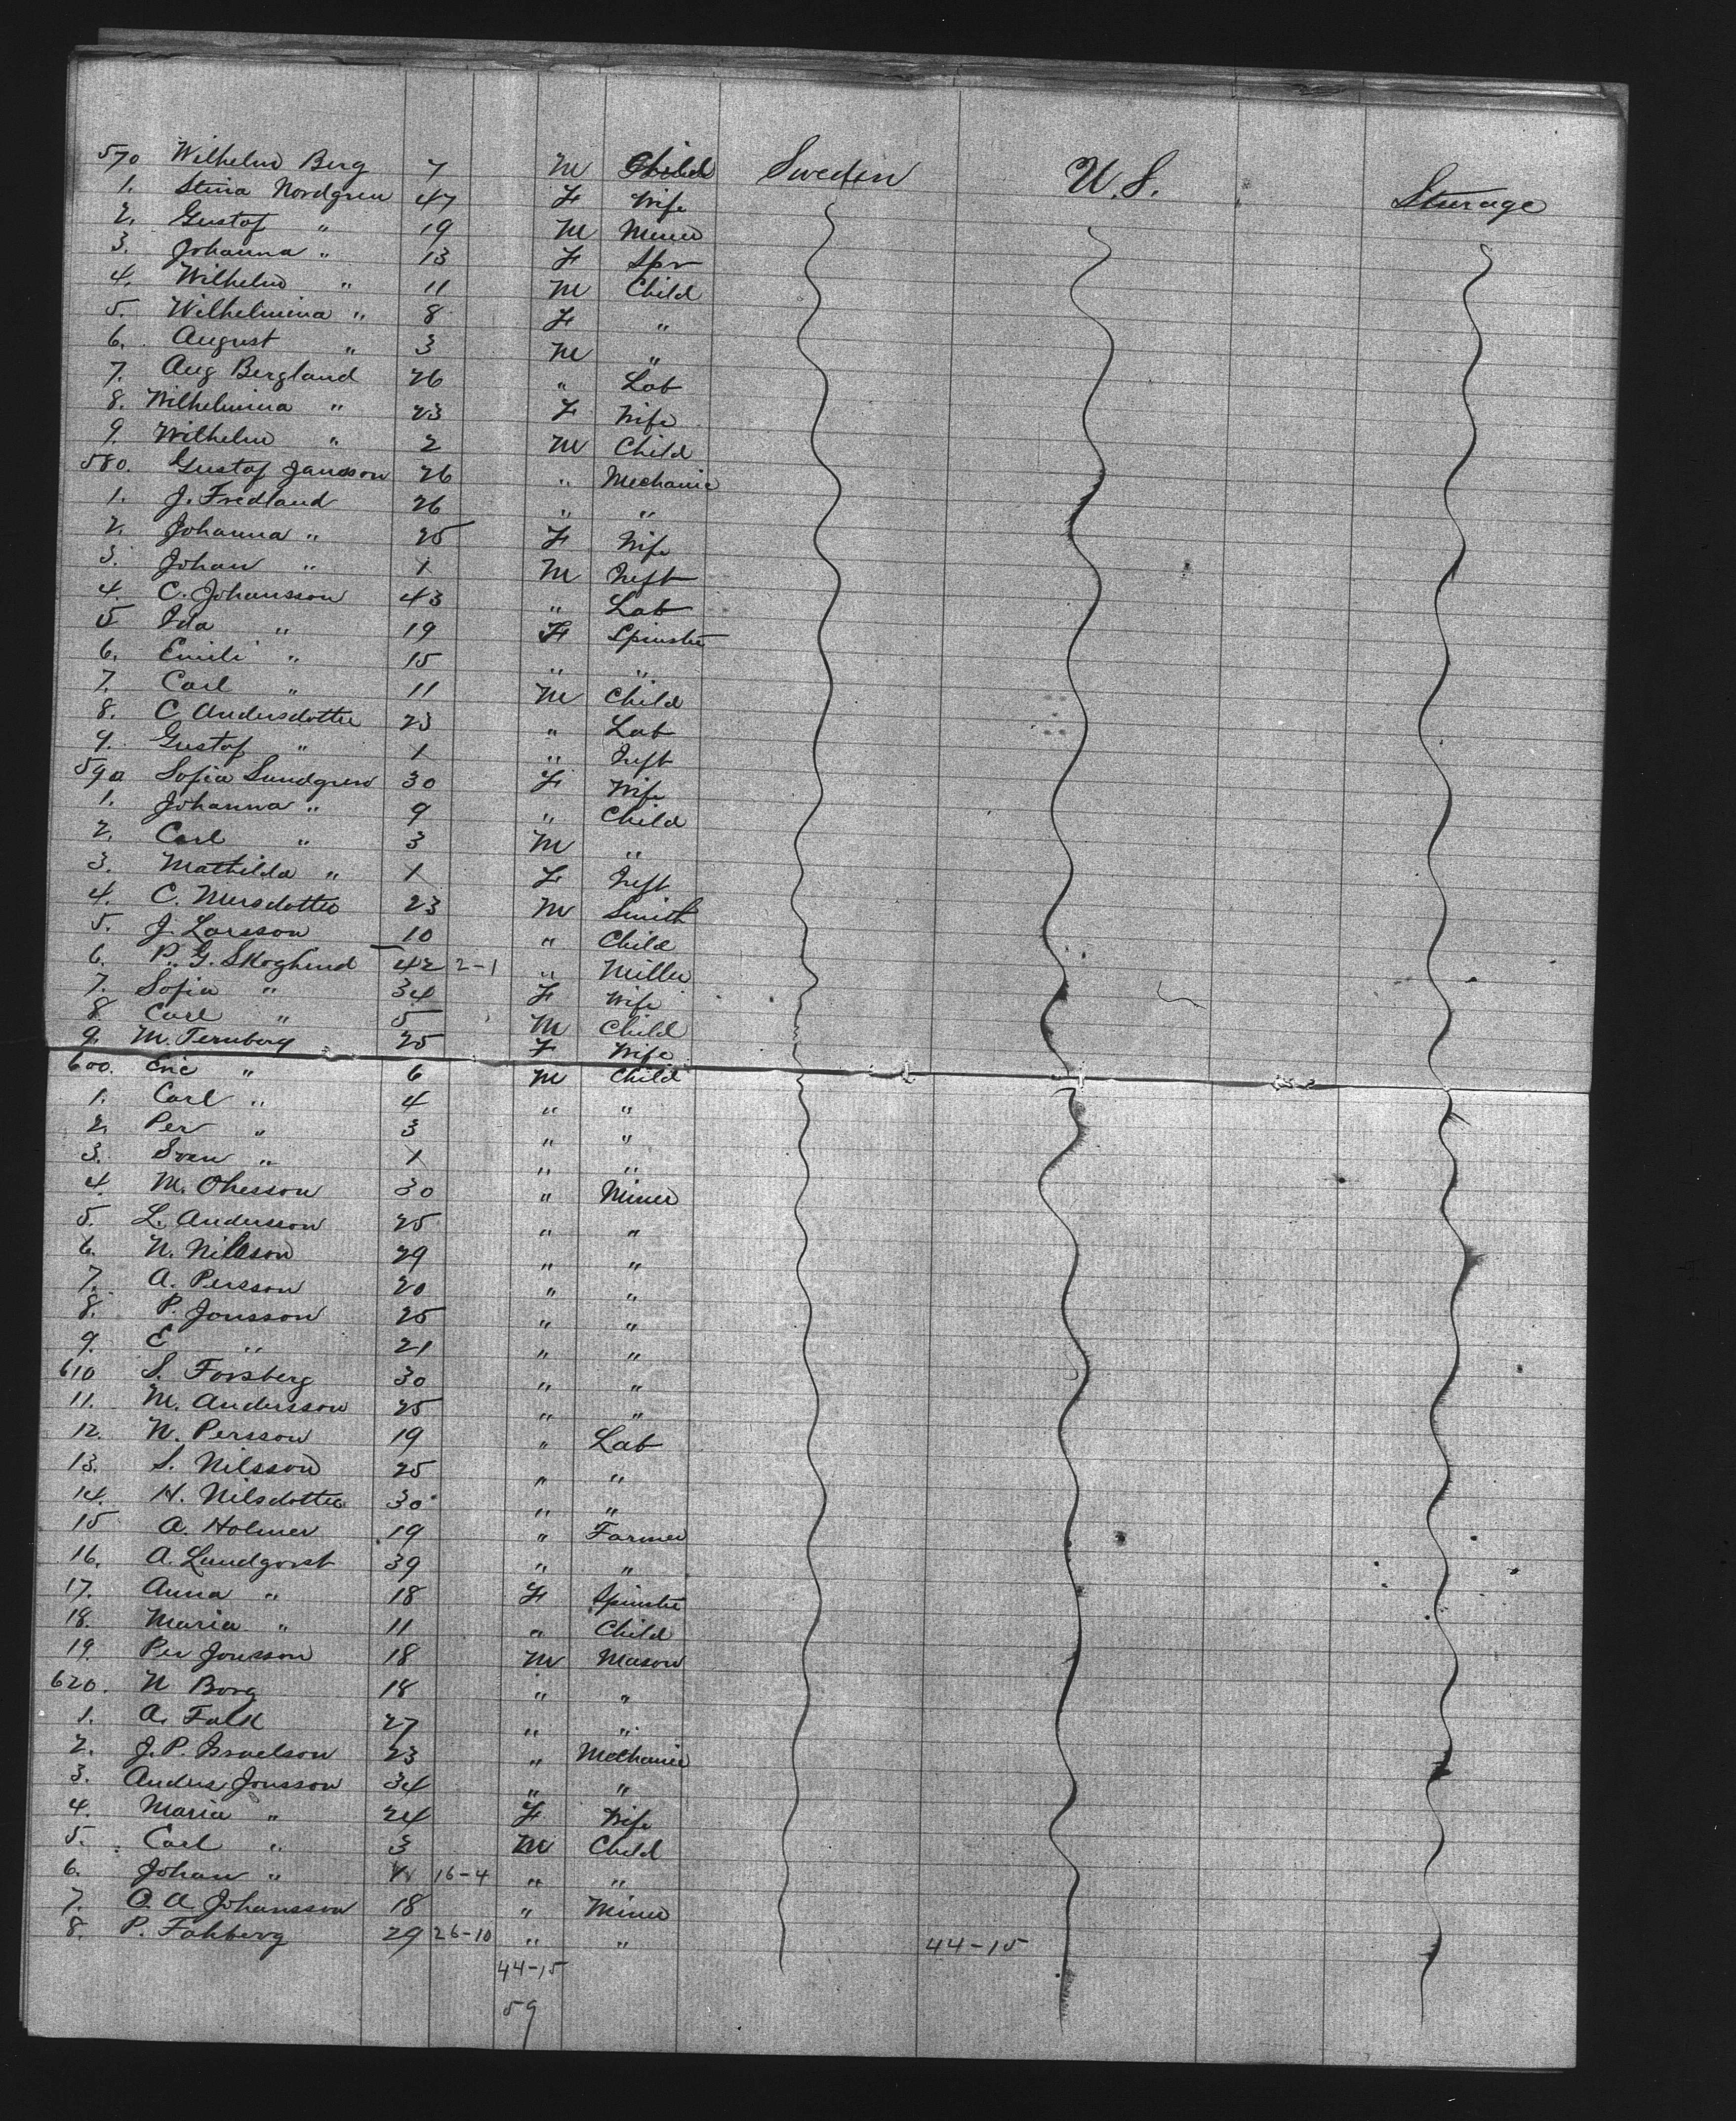 570 Wilhelm Berg 7 M Child Sweden U.S. Sturage
1. Stina Nordgren 47 F Wife
2. Gustaf " 19 M Miner
3. Johanna " 13 F Spr
4. Wilhelm " 11 M Child
5. Wilhelmina " 8 F "
6. August " 3 M "
7. Aug Bergland 26 " Lab
8. Wilhelmina " 23 F Wife
9. Wilhelm " 2 M Child
580. Gustaf Jansson 26 " Mechanic
1. J. Fredland 26 " "
2. Johanna " 25 F Wife
3. Johan " 1 M Inft
4. C. Johansson 43 " Lab
5 Ida " 19 F Spinster
6. Emili " 15 " "
7. Carl " 11 M Child
8. C Andersdotter 23 " Lab
9. Gustaf " 1 " Inft
590 Sofia Sundgren 30 F Wife
1. Johanna " 9 " Child
2. Carl " 3 M "
3. Mathilda " 1 F Inft
4. C. Mersdotter 23 M Smith
5. J. Larsson 10 " Child
6. P. G. Skoglund 42 2-1 " Miller
7. Sofia " 34 F Wife
8 Carl " 5 M Child
9. M. Ternberg 25 F Wife
600. Eric " 6 M Child
1. Carl " 4 " "
2. Per " 3 " "
3. Sven " 1 " "
4. M. Ohesson 30 " Miner
5. L. Andersson 25 " "
6. N. Nilsson 29 " "
7. A. Persson 20 " "
8. P. Jonsson 25 " "
9. E " 21 " "
610 S. Forsberg 30 " "
11. M. Andersson 25 " "
12. N. Persson 19 " Lab
13. S. Nilsson 25 " "
14. H. Nilsdotter 30 " "
15 A. Holmer 19 " Farmer
16. A. Lundgvist 39 " "
17. Anna " 18 F Spinster
18. Maria " 11 " Child
19. Per Jonsson 18 M Mason
620. N Borg 18 " "
1. A. Falk 27 " "
2. J. P. Israelson 23 " Mechanic
3. Anders Jonsson 34 " "
4. Maria " 24 F Wife
5. Carl " 3 M Child
6. Johan " 16-4 " "
7. O. A. Johansson 18 " Miner
8. P. Fahberg 29 26-10 " " 44-15
44-15
59